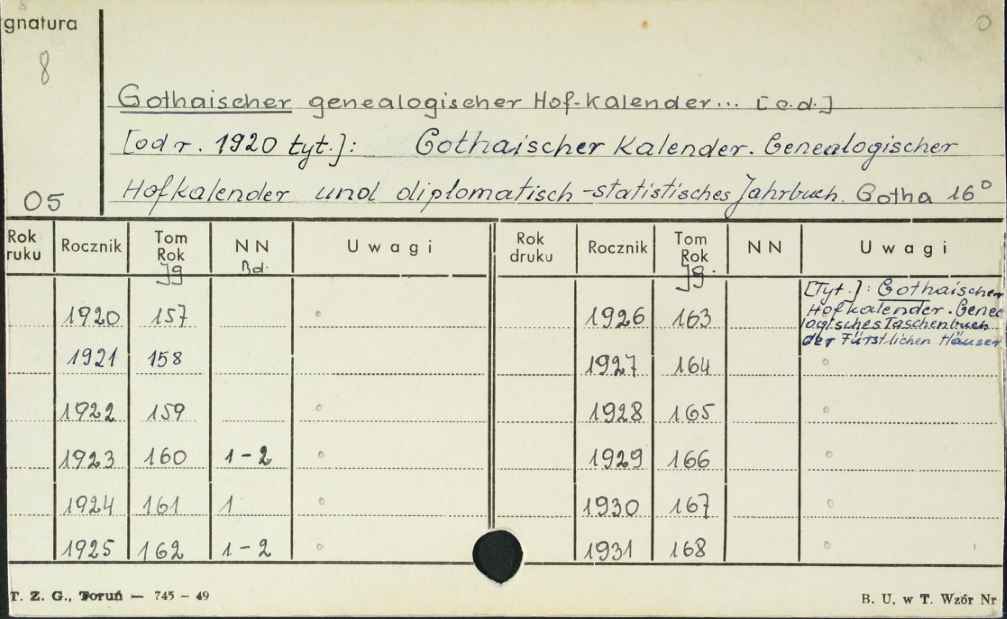 gnatura
8
05
Gothaischer genealogischer Hof-Kalender... [c.d.]
[od r. 1920 tyt.]: Gothaischer Kalender. Genealogischer
Hofkalender und diplomatisch-statistisches Jahrbuch. Gotha 16°
Rok ruku Rocznik Tom Rok Jg NN Bd. Uwagi Rok druku Rocznik Tom Rok Jg. NN Uwagi
1920 157 1926 163 [Tyt.]: Gothaischer
Hofkalender. Genea
logisches Taschenbuch
der Fürstlichen Häuser
1921 158 1927 164
1922 159 1928 165
1923 160 1-2 1929 166
1924 161 1 1930 167
1925 162 1-2 1931 168
T. Z. G., Toruń — 745 - 49 B. U. w T. Wzór Nr